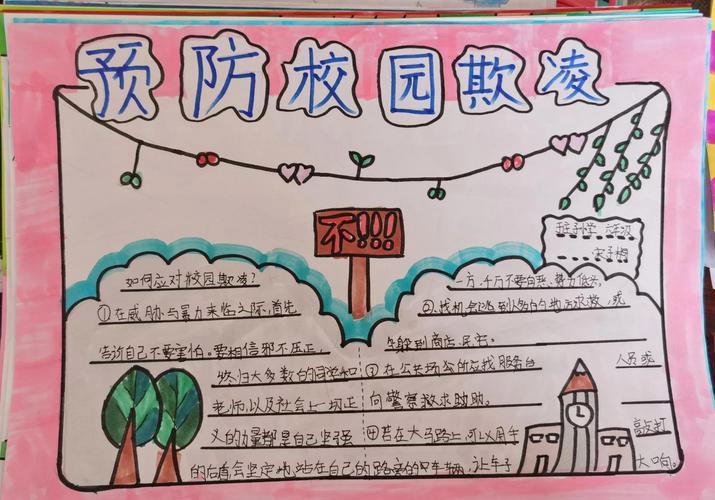 预防校园欺凌
不!!!
六年级
如何应对校园欺凌?
①在威胁与暴力来临之际,首先
告诉自己不要害怕。要相信邪不压正,
终归大多数的同学和
老师,以及社会上一切正
义的力量都是自己坚强
的后盾会坚定地站在自己的
一方,千万不要
②找机会逃到人多的地方求救,或
躲到商店、民宅。
③在公共场公所应找服务台
人员或
向警察求救求助。
④若在大马路上,可以用车
高点打
车辆,让车子
大口向。